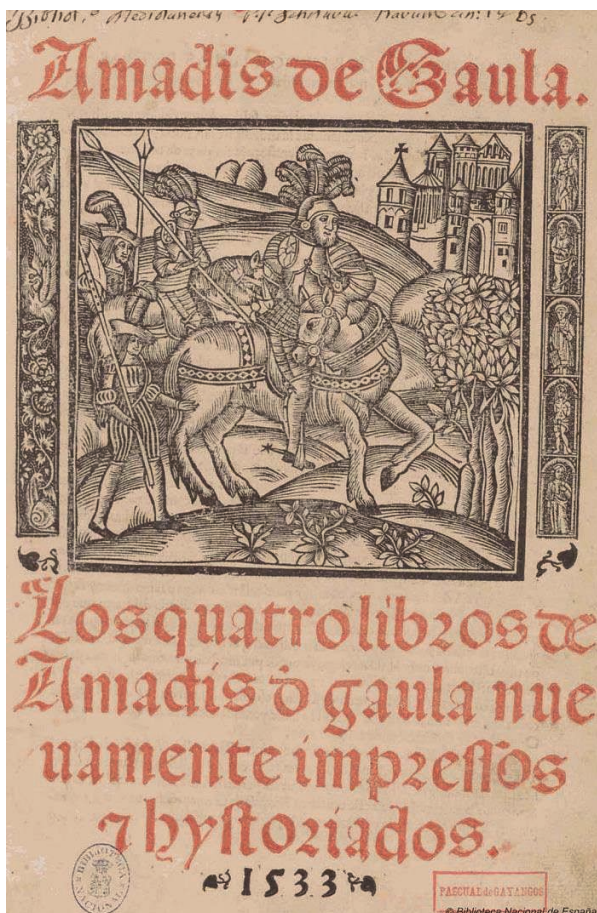 Amadis de Gaula.
Los quatro libros de
Amadis d̄ gaula nue
uamente impressos
⁊ hystoriados.
1533
PASCUAL de GAYANGOS
© Biblioteca Nacional de España